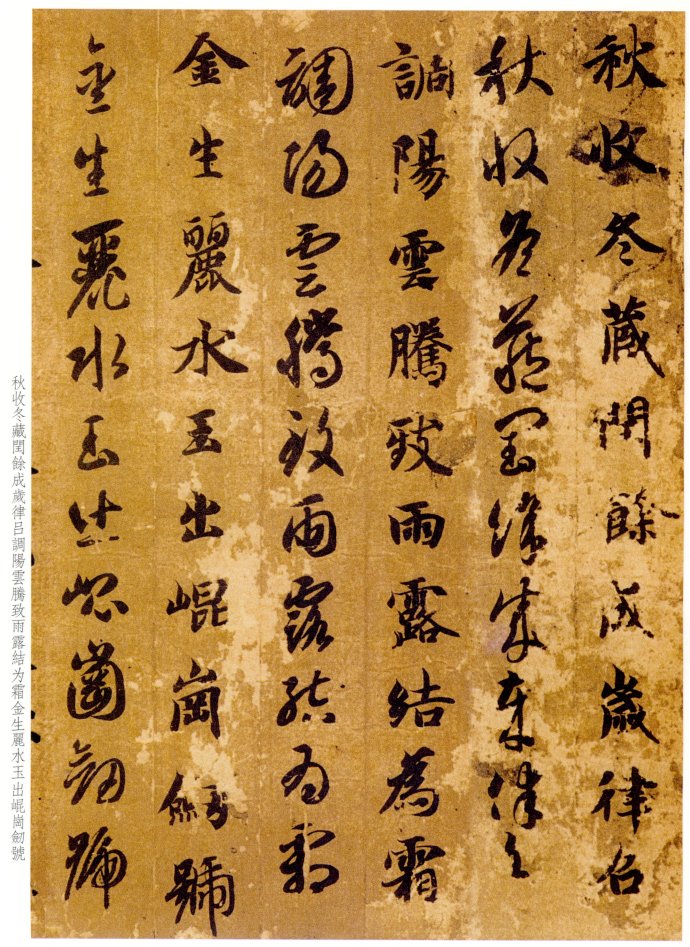 秋收冬藏閏餘成歲律召
秋收冬藏閏餘成歲律召
調陽雲騰致雨露結為霜
調陽雲騰致雨露結為霜
金生麗水玉出崐崗劒號
金生麗水玉出崐崗劒號
秋收冬藏閏餘成歲律吕調陽雲騰致雨露結为霜金生麗水玉出崐崗劒號